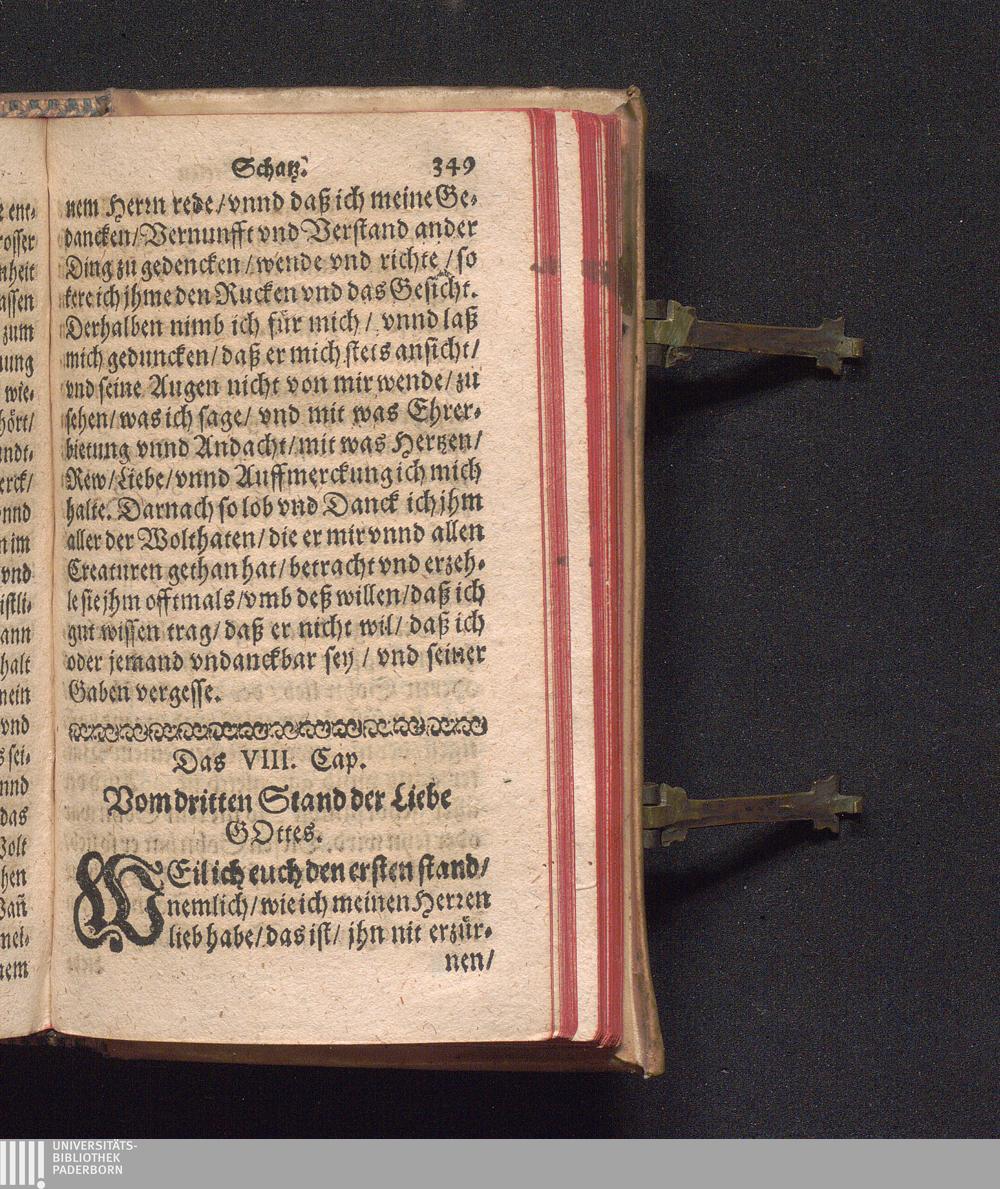 Schatz. 349
nem Herrn rede/vnnd daß ich meine Ge-
dancken/Vernunfft vnd Verstand ander
Ding zu gedencken/wende vnd richte/so
kere ich jhme den Rucken vnd das Gesicht.
Derhalben nimb ich für mich/ vnnd laß
mich geduncken/daß er mich stets ansicht/
vnd seine Augen nicht von mir wende/zu
sehen/was ich sage/ vnd mit was Ehrer-
bietung vnnd Andacht/mit was Hertzen/
Rew/Liebe/vnnd Auffmerckung ich mich
halte. Darnach so lob vnd Danck ich jhm
aller der Wolthaten/die er mir vnnd allen
Creaturen gethan hat/betracht vnd erzeh-
le sie jhm offtmals/vmb deß willen/daß ich
gut wissen trag/daß er nicht wil/ daß ich
oder jemand vndanckbar sey/ vnd seiner
Gaben vergesse.
Das VIII. Cap.
Vom dritten Stand der Liebe
GOttes.
WEil ich euch den ersten stand/
nemlich/wie ich meinen Herren
lieb habe/das ist/ jhn nit erzür-
nen/
ent-
rosser
nheit
assen
zum
ung
wie-
hört/
ndt-
erck/
nnd
n im
vnd
istli-
ann
halt
nein
vnd
s sei-
nnd
das
Volt
hen
Wañ
mei-
nem
UNIVERSITÄTS-
BIBLIOTHEK
PADERBORN